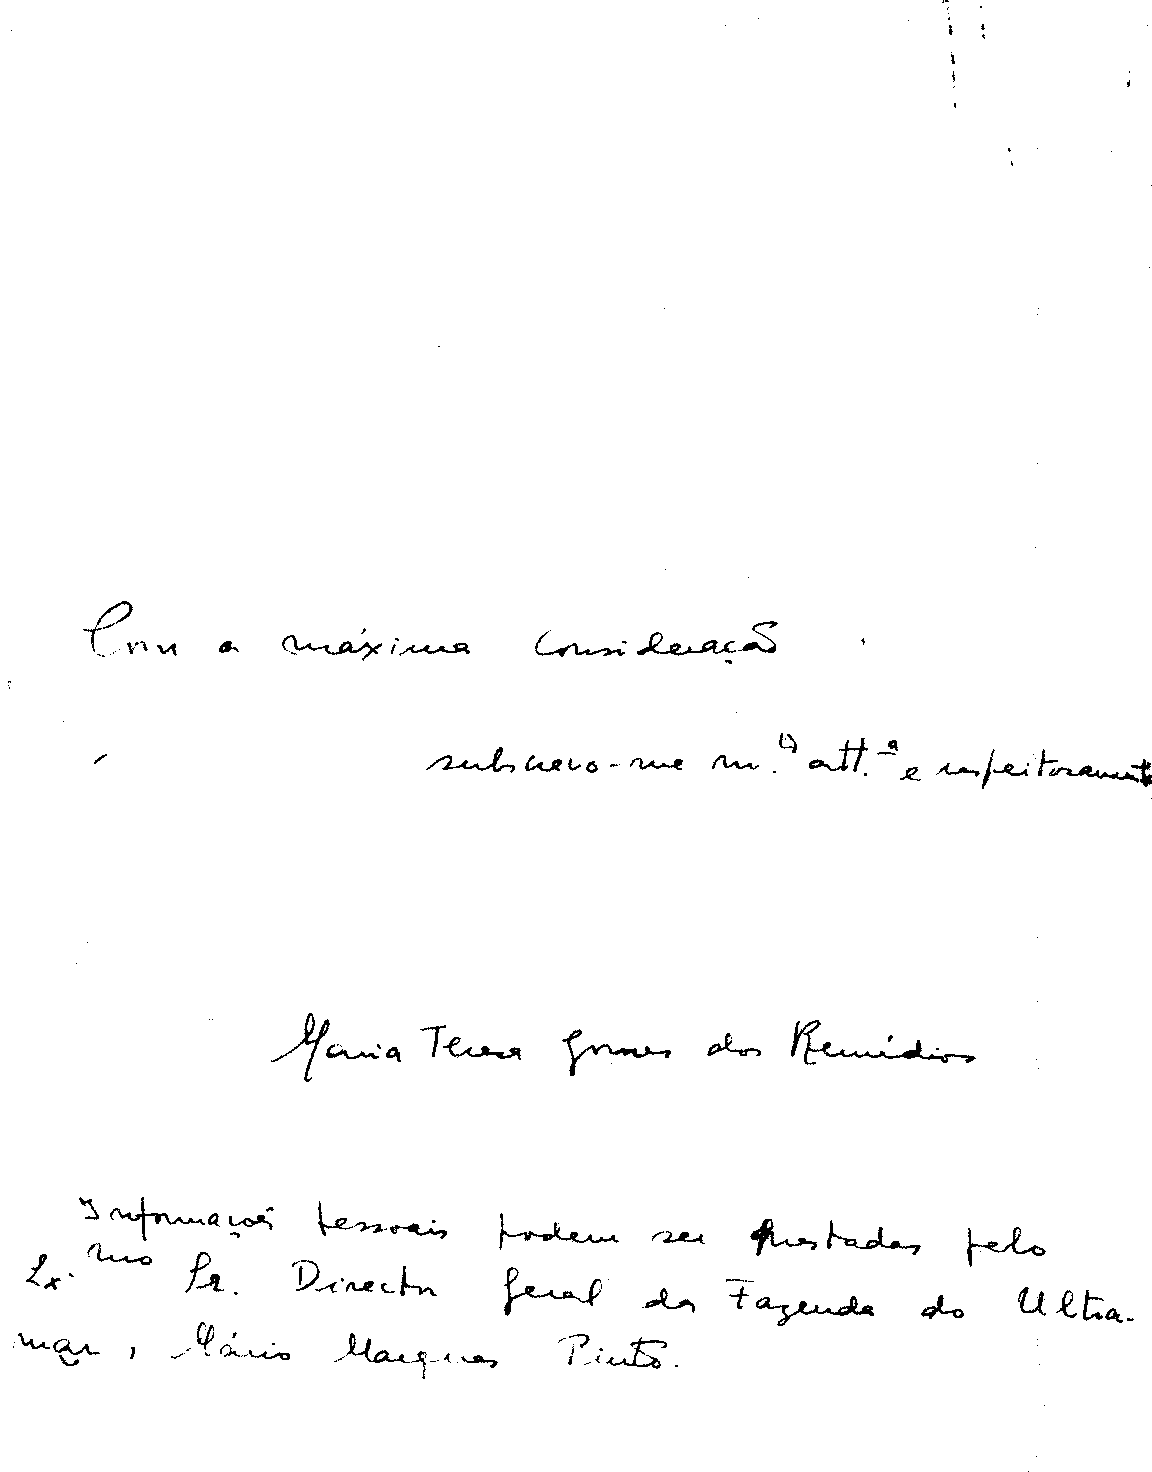 Com a máxima consideração
subscrevo-me m.º att.ª e respeitosamente
Maria Teresa Gomes dos Remédios
Informações pessoais podem ser prestadas pelo
Ex.mo Sr. Director Geral da Fazenda do Ultra-
mar, Mário Marques Pinto.